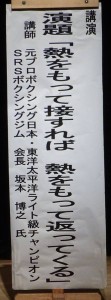 講演
演題「熱をもって接すれば 熱をもって返ってくる」
講師 元プロボクシング日本・東洋太平洋ライト級チャンピオン
SRSボクシングジム 会長 坂本 博之 氏